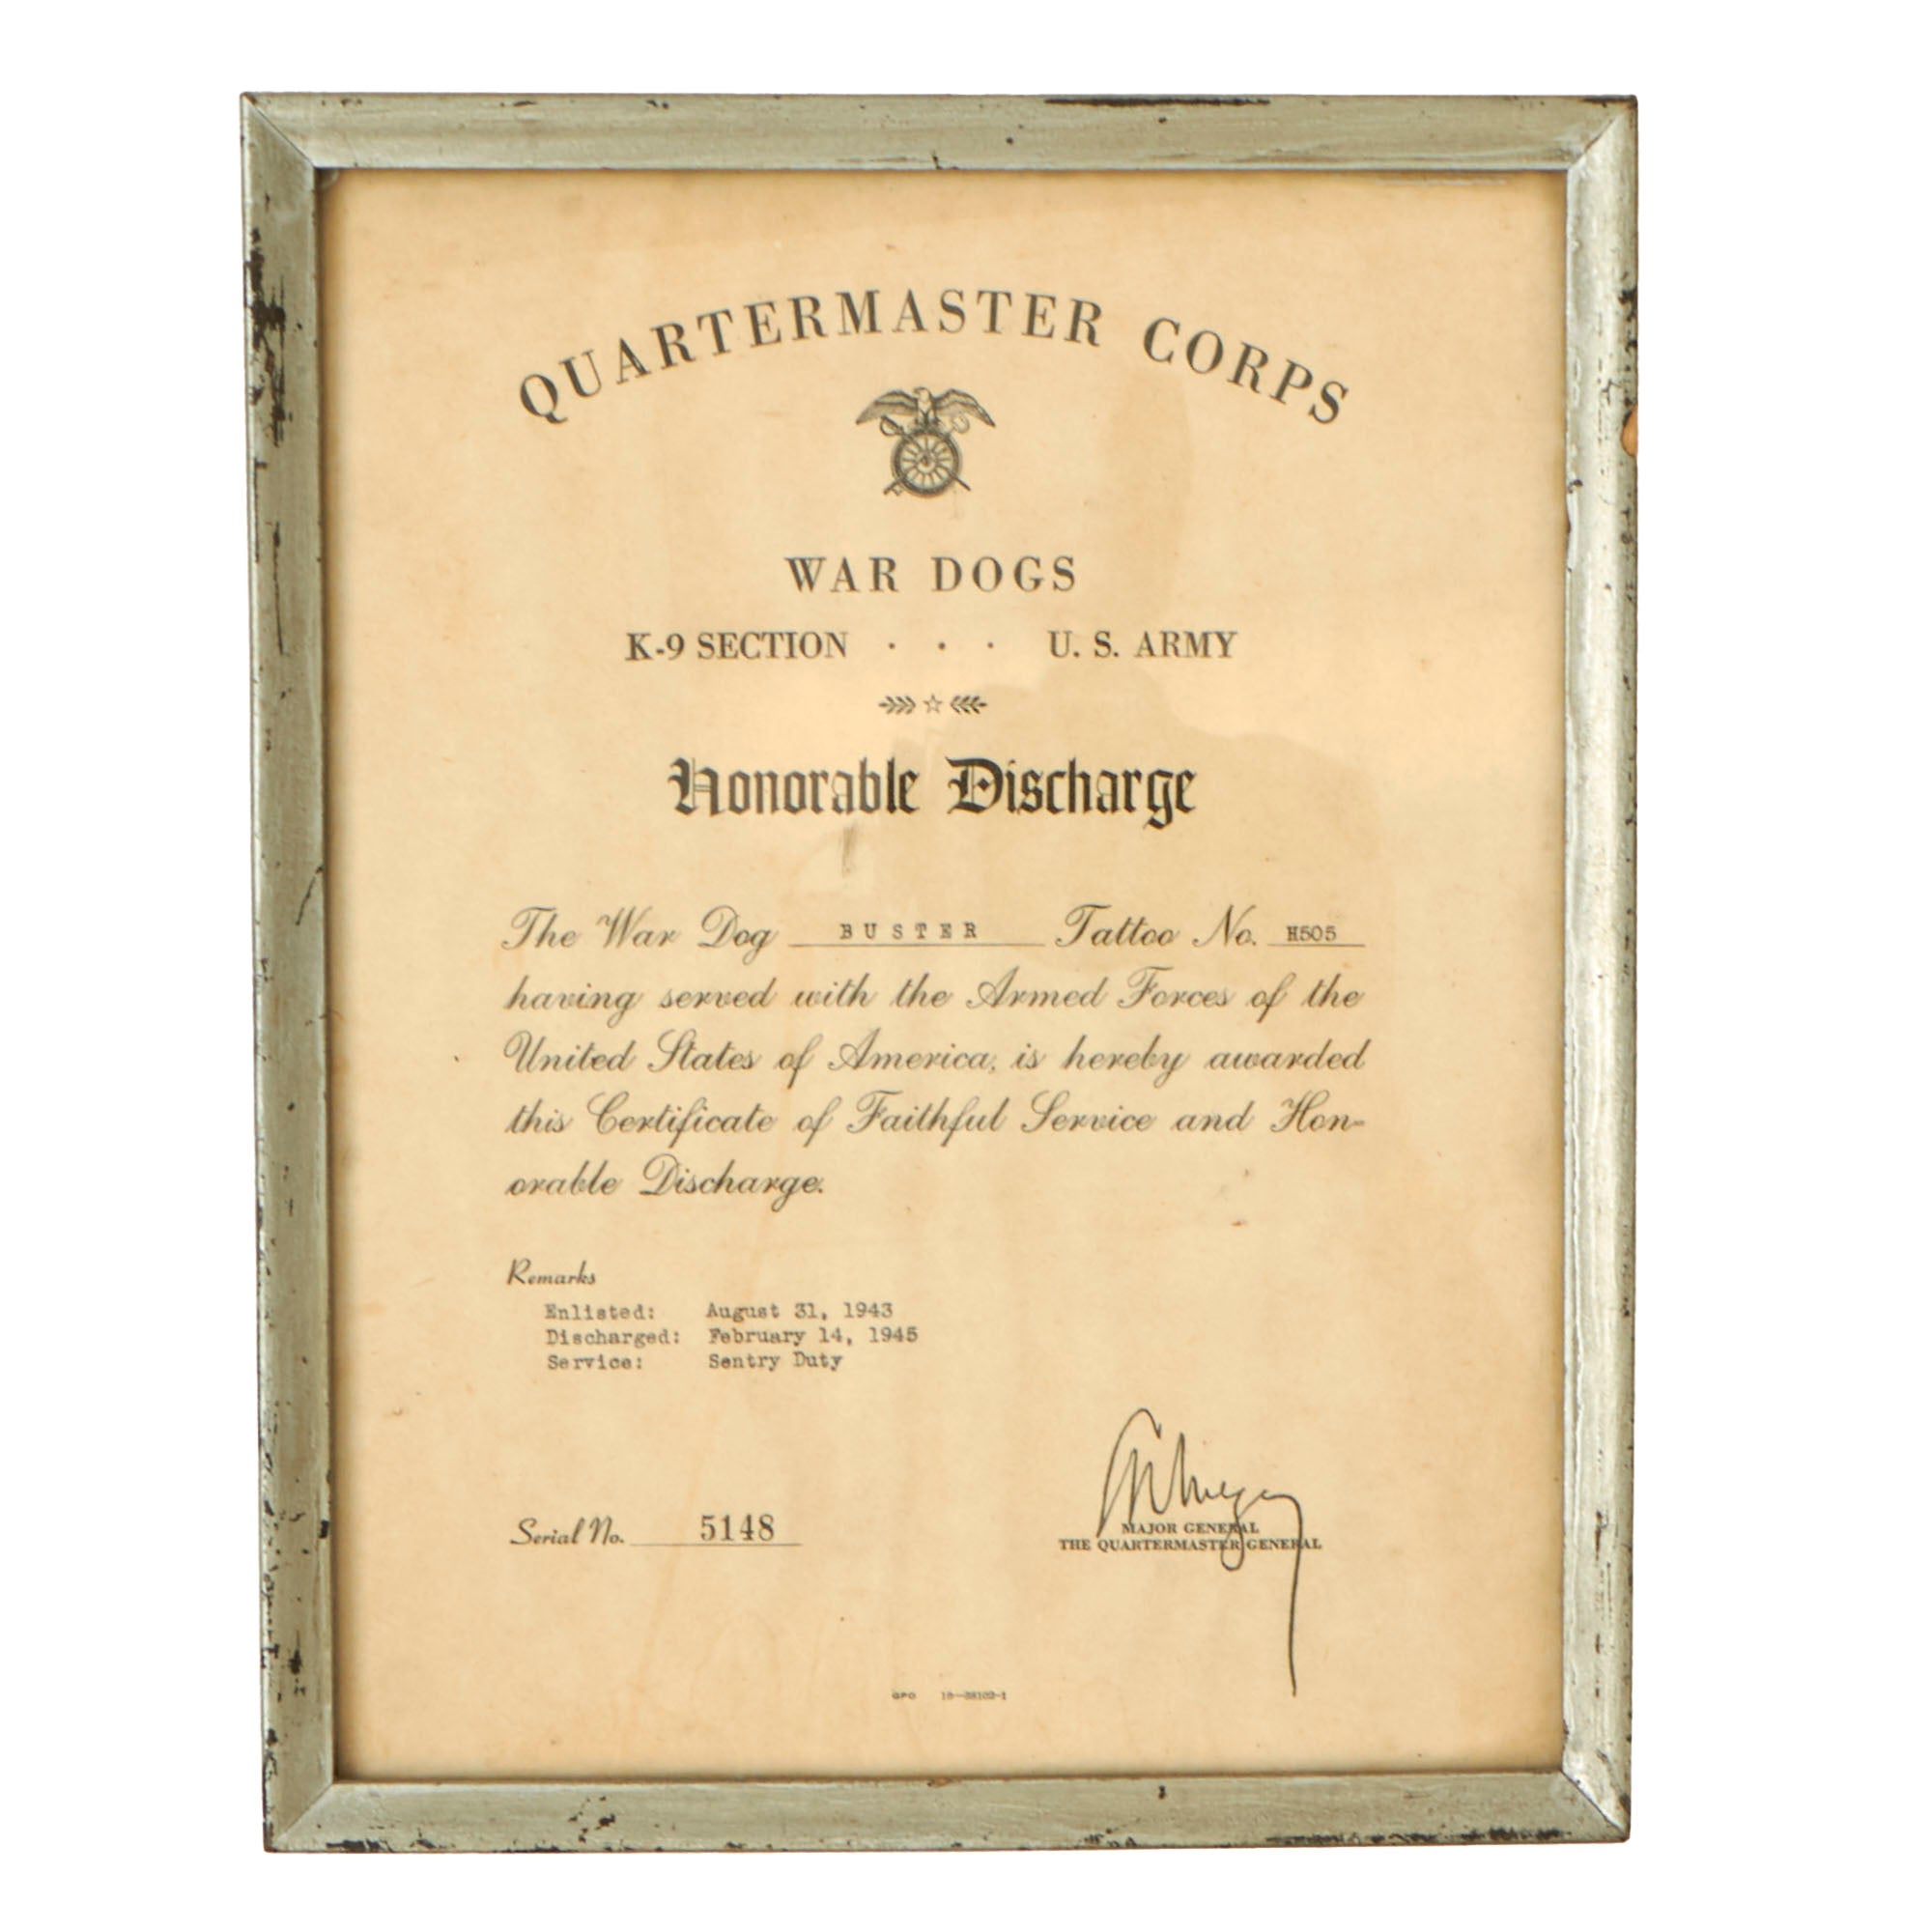 QUARTERMASTER CORPS
WAR DOGS
K-9 SECTION · · · U. S. ARMY
Honorable Discharge
The War Dog BUSTER Tattoo No. H505
having served with the Armed Forces of the
United States of America, is hereby awarded
this Certificate of Faithful Service and Hon-
orable Discharge.
Remarks
Enlisted: August 31, 1943
Discharged: February 14, 1945
Service: Sentry Duty
Serial No. 5148
MAJOR GENERAL
THE QUARTERMASTER GENERAL
GPO